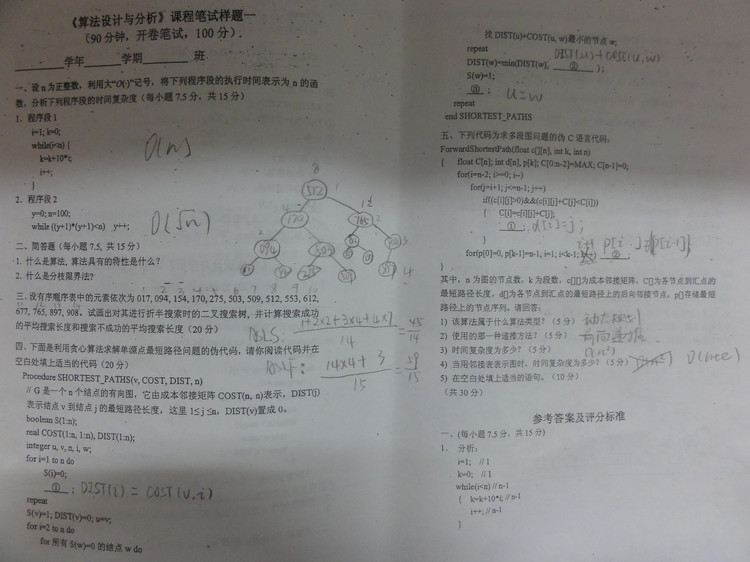 《算法设计与分析》课程笔试样题一
(90分钟，开卷笔试，100分).
学年 学期 班
一、设n为正整数，利用大"O()"记号，将下列程序段的执行时间表示为n的函
数，分析下列程序段的时间复杂度（每小题7.5分，共15分）
1. 程序段1
i=1; k=0;
while(i<n) {
k=k+10*i;
i++;
}
O(n)
2. 程序段2
y=0; n=100;
while ((y+1)*(y+1)<n) y++;
O(√n)
二、简答题（每小题7.5, 共15分）
1. 什么是算法, 算法具有的特性是什么?
2. 什么是分枝限界法?
三. 设有序顺序表中的元素依次为 017, 094, 154, 170, 275, 503, 509, 512, 553, 612,
677, 765, 897, 908。试画出对其进行折半搜索时的二叉搜索树，并计算搜索成功
的平均搜索长度和搜索不成功的平均搜索长度（20分）
1+2×2+3×4+4×7
14
= 45
14
14×4+3
15
= 59
15
四. 下面是利用贪心算法求解单源点最短路径问题的伪代码，请你阅读代码并在
空白处填上适当的代码（20分）
Procedure SHORTEST_PATHS(v, COST, DIST, n)
// G是一个n个结点的有向图，它由成本邻接矩阵COST(n, n)表示，DIST(j)
表示结点v到结点j的最短路径长度，这里1≤j≤n，DIST(v)置成0。
boolean S(1:n);
real COST(1:n, 1:n), DIST(1:n);
integer u, v, n, i, w;
for i=1 to n do
S(i)=0;
① ; DIST(i) = COST(v,i)
repeat
S(v)=1; DIST(v)=0; u=v;
for i=2 to n do
for 所有S(w)=0的结点w do
找DIST(u)+COST(u, w)最小的节点w;
repeat
DIST(u)+COST(u,w)
DIST(w)=min(DIST(w), ② );
S(w)=1;
③ ; u=w
repeat
end SHORTEST_PATHS
五、下列代码为求多段图问题的伪C语言代码:
ForwardShortestPath(float c[][n], int k, int n)
{ float C[n]; int d[n], p[k]; C[0:n-2]=MAX; C[n-1]=0;
for(i=n-2; i>=0; i--)
for(j=i+1; j<=n-1; j++)
if((c[i][j]>0)&&(c[i][j]+C[j]<C[i]))
{ C[i]=c[i][j]+C[j];
① ; d[i]=j; }
for(p[0]=0, p[k-1]=n-1, i=1; i<k-1; ②
}
其中，n为图的节点数，k为段数，c[][]为成本邻接矩阵、C[]为各节点到汇点的
最短路径长度，d[]为各节点到汇点的最短路径上的后向邻接节点，p[]存储最短
路径上的节点序列。请回答:
1) 该算法属于什么算法类型？（5分） 动态规划
2) 使用的那一种递推方法？（5分）
3) 时间复杂度为多少？（5分） O(n²)
4) 当用邻接表表示图时，时间复杂度为多少?（5分） O(n+e)
5) 在空白处填上适当的语句。（10分）
(共30分)
参考答案及评分标准
一、(每小题7.5分，共15分)
1. 分析:
i=1; // 1
k=0; // 1
while(i<n) // n-1
{ k=k+10*i; // n-1
i++; // n-1
}